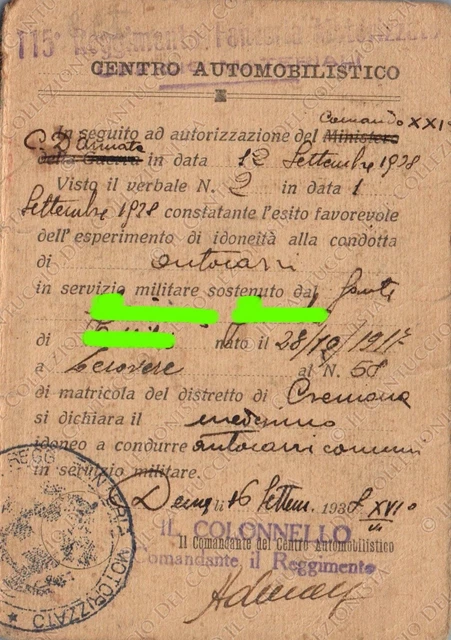 115° Reggimento Fanteria Motorizzato
CENTRO AUTOMOBILISTICO
In seguito ad autorizzazione del Ministero Comando XXI°
C. D'Armata della Guerra in data 12 Settembre 1938
Visto il verbale N. 2 in data 1
Settembre 1938 constatante l'esito favorevole
dell'esperimento di idoneità alla condotta
di autocarri
in servizio militare sostenuto dal fante
di nato il 28/10/1917
a al N. 58
di matricola del distretto di Cremona
si dichiara il medesimo
idoneo a condurre autocarri comuni
in servizio militare.
Derna li 16 Settem. 1938 XVI°
IL COLONNELLO
Il Comandante del Centro Automobilistico
Comandante il Reggimento
REGG. FANTERIA MOTORIZZATO